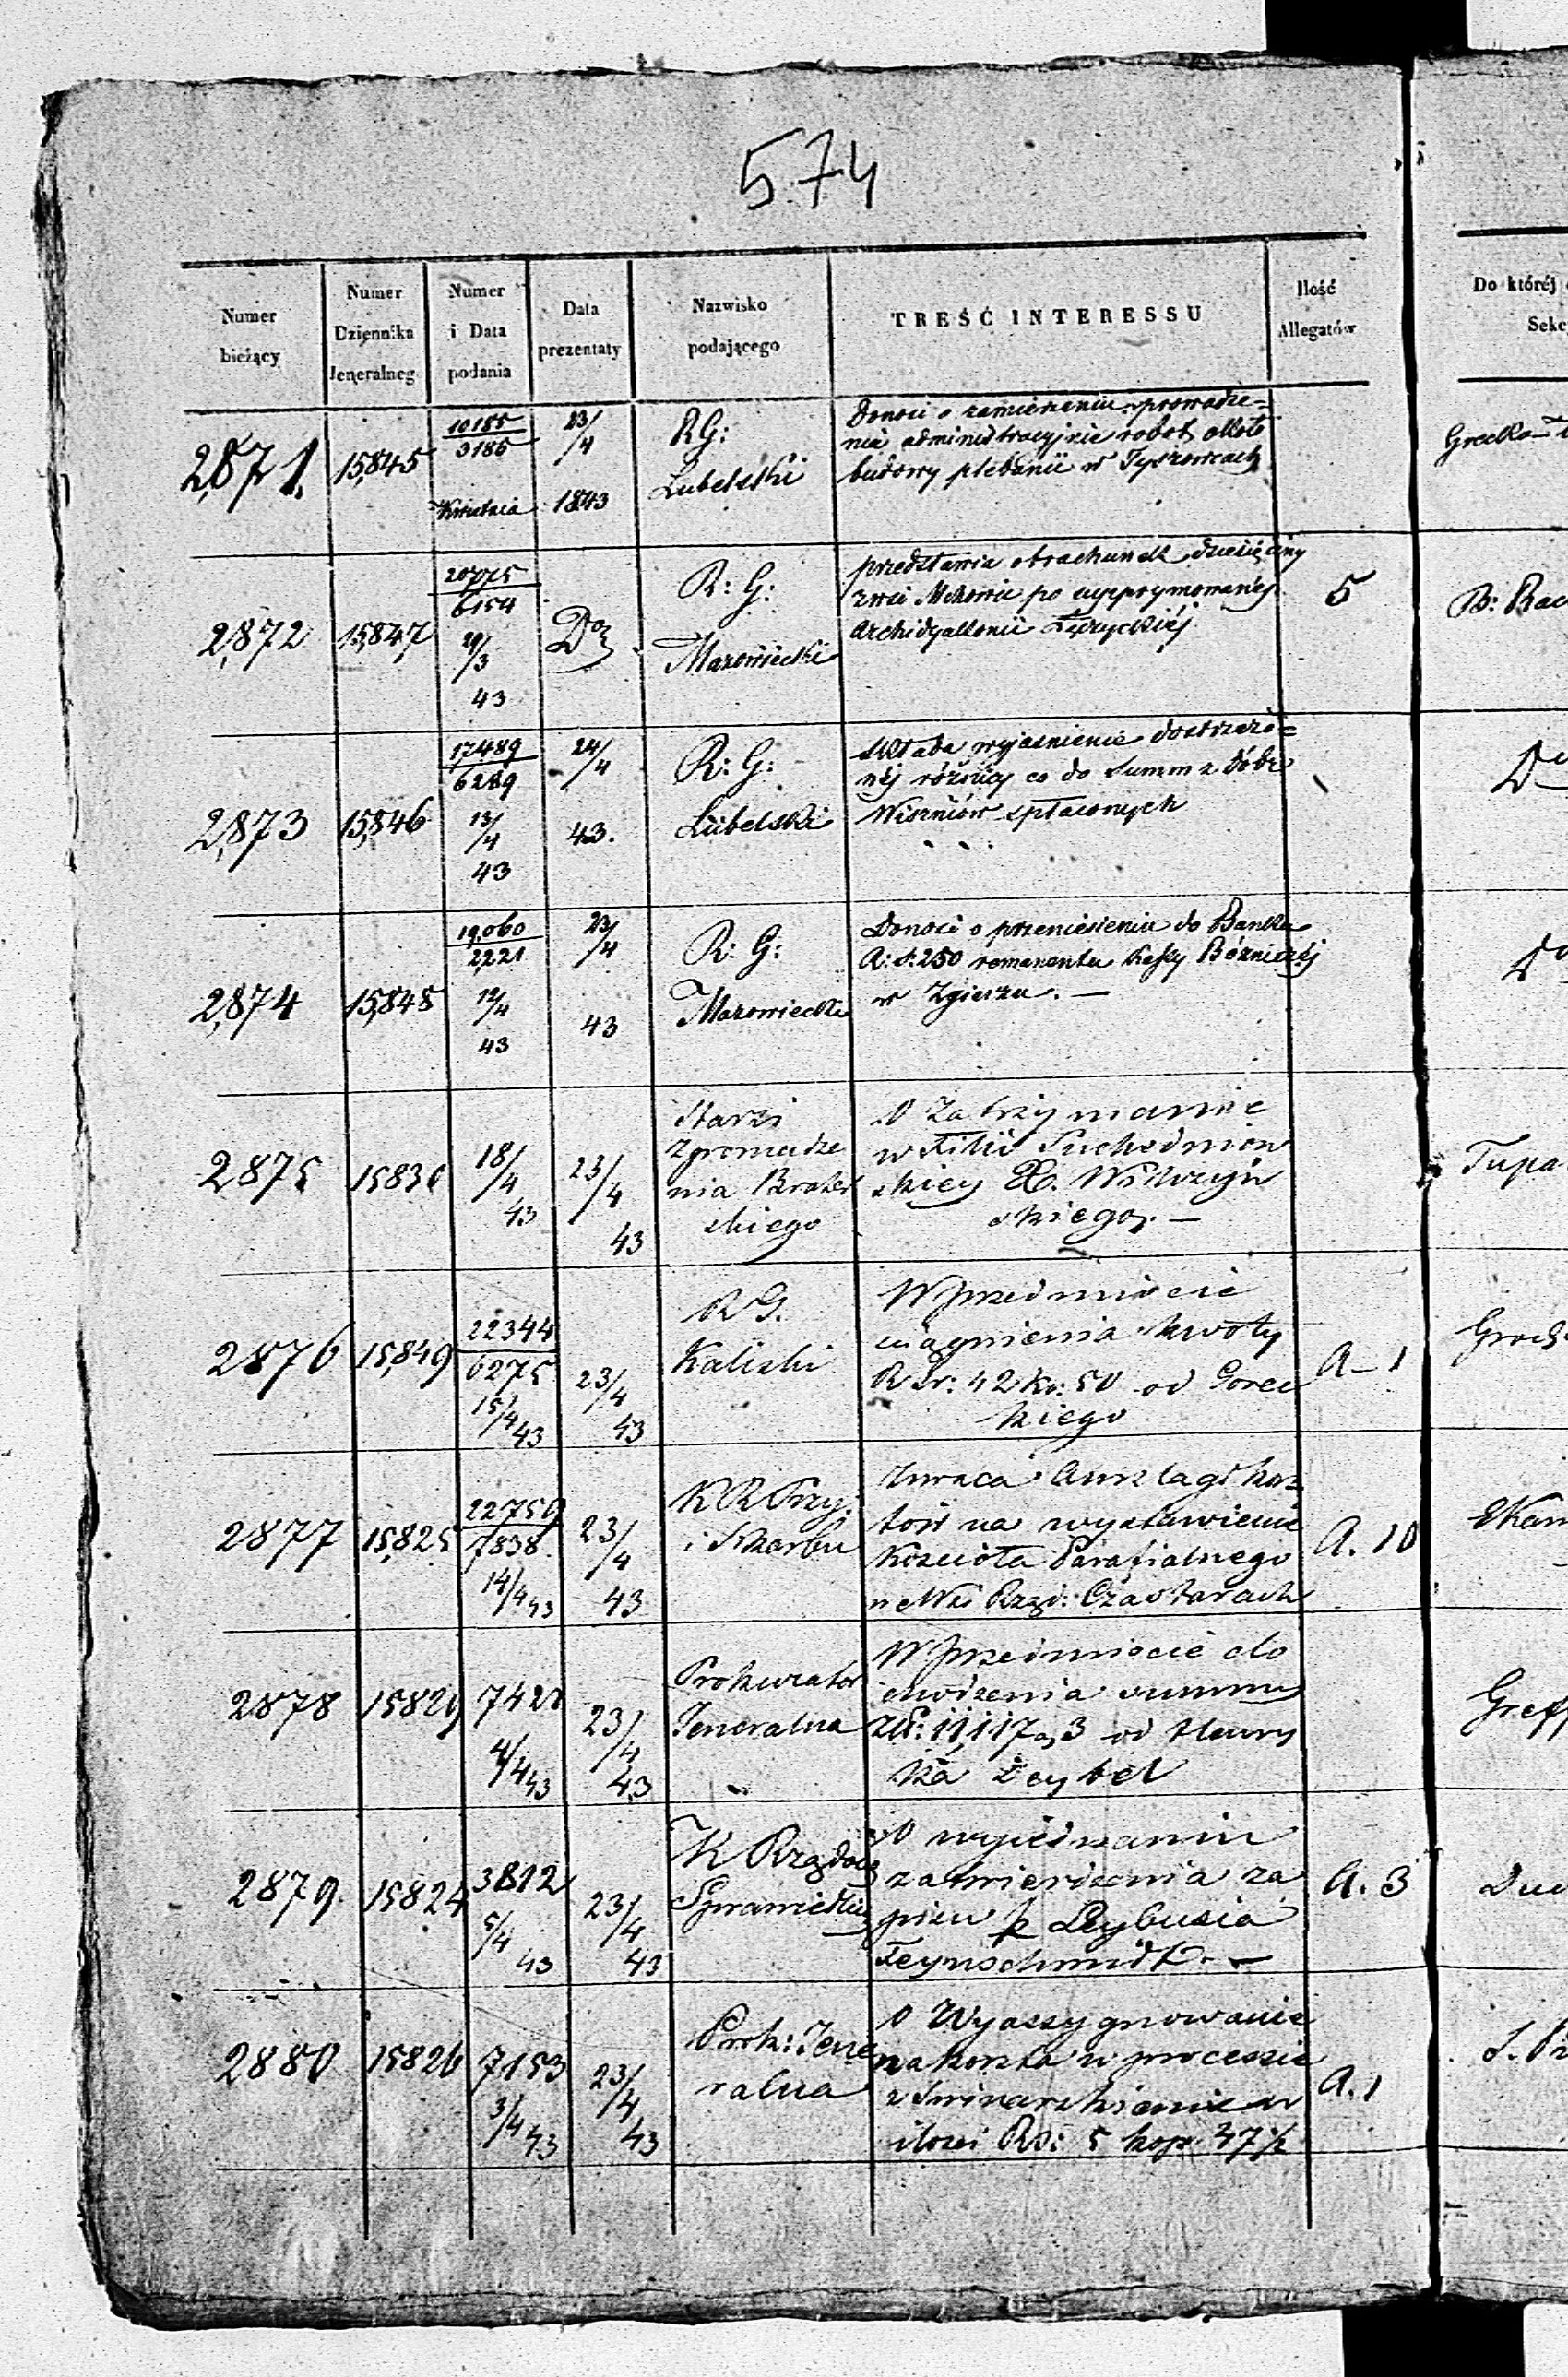 574
Numer bieżący
Numer Dziennika Jeneralneg
Numer i Data podania
Data prezentaty
Nazwisko podającego
TREŚĆ INTERESSU
Ilość Allegatów
Do któréj
Sekc
2,871. 15,845 10185 3186 Kwietnia 23/4 1843
RG:
Lubelski
Donosi o zamierzeniu prowadze=
nia administracyjnie robot około
budowy plebanii w Tyszowcach
2,872 15,847 6154 43 Do
R: G:
Mazowiecki
przedstawia obrachunek dziesięciny
zwsi po supprymowanéj
Archidyakonii Łęczyckiéj
5
B:
2,873 15,846 17489 6289 13/4 43 24/4 43.
R: G:
Lubelski
Składa wyjasnienie dostrzeżo=
néj różnicy co do Summ z dóbr
Wiszniów spłaconych
2,874 15,848 19,060 2,221 12/4 43 23/4 43
R: G:
Mazowiecki
Donosi o przeniesieniu do Banku
R: S: 250 remanentu Kassy Bóżniczéj
w Zgierzu. —
2875 15836 18/4 43 23/4 43
Starsi
Zgromadze
nia
skiego
O Zatrzymanie
w Filii Suchedniow
skiey X. Wilczyń
skiego. —
Tupa
2876 15,849 22344 6275 15/4 43 23/4 43
RG.
Kaliski
W przedmiocie
ciągnienia kwoty
R Sr: 42 ko: 50 od Gorec
kiego
A - 1
2877 15,825 22759 7838 14/4 43 23/4 43
K R Przy:
i Skarbu
Zwraca Anszlag kosz
tów na wystawienie
Kościoła Parafialnego
we Wsi Rząd: Czastarach
A. 10
2878 7428 4/4 43 23/4 43
Prokurator
Jeneralna
W przedmiocie do
chodzenia summy
Złt: 11,117 g 3 od Henry
ka Leybel
Greff
2879. 15824 3812 5/4 43 23/4 43
K Rządowa
Sprawiedliw
O wyjednaniu
zatwierdzenia za
pisu p Leybusia
A. 3
2880 15826 7153 3/4 43 23/4 43
Prok: Jene
ralna
O Wyassygnowanie
na koszta w processie
z Swinarskiemi w
ilosci RS: 5 kop. 47 ½
A. 1